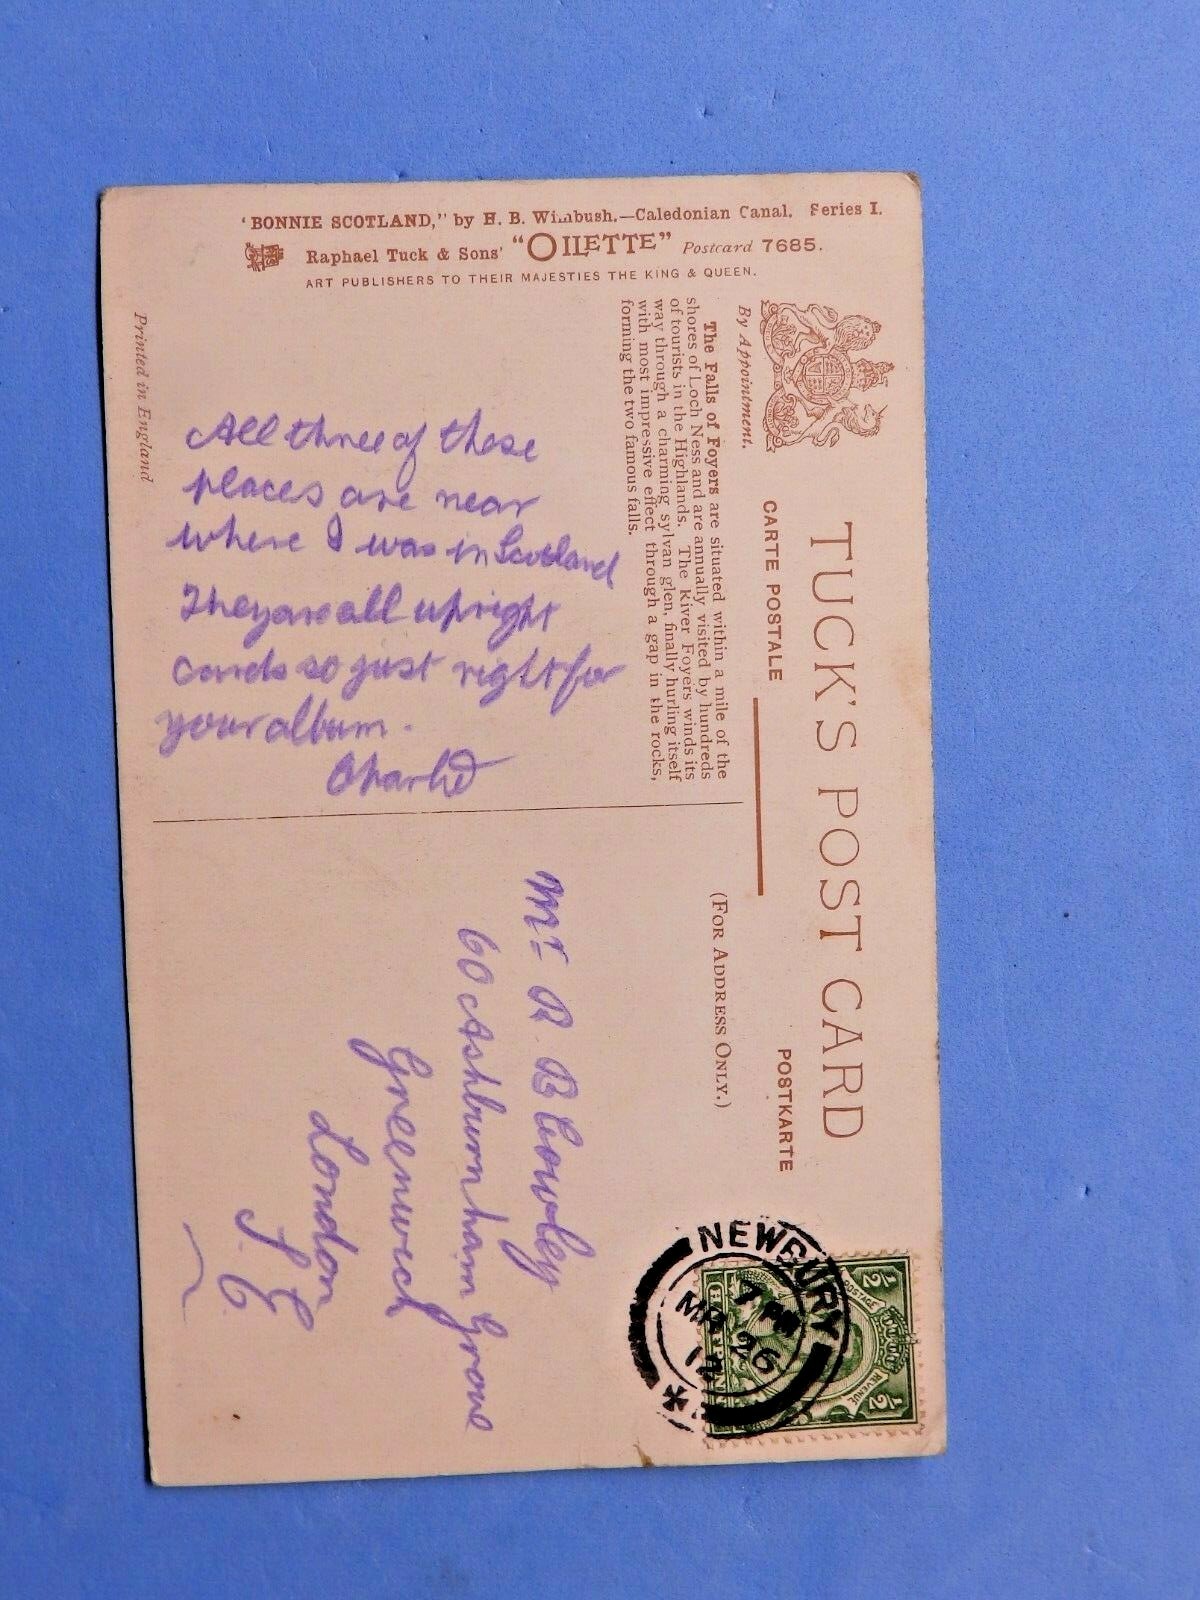 'BONNIE SCOTLAND," by H. B. Wimbush.—Caledonian Canal. Series I.
Raphael Tuck & Sons' "OILETTE" Postcard 7685.
ART PUBLISHERS TO THEIR MAJESTIES THE KING & QUEEN.
TUCK'S POST CARD
CARTE POSTALE
POSTKARTE
By Appointment.
(FOR ADDRESS ONLY.)
The Falls of Foyers are situated within a mile of the
shores of Loch Ness and are annually visited by hundreds
of tourists in the Highlands. The River Foyers winds its
way through a charming sylvan glen, finally hurling itself
with most impressive effect through a gap in the rocks,
forming the two famous falls.
Printed in England
All three of these
places are near
where I was in Scotland
They are all upright
cards so just right for
your album.
Charlie
Mr R B Cowley
60 Ashburnham Grove
Greenwich
London
S. E
NEWBURY
7 PM
MR 26
12
½
POSTAGE
REVENUE
½